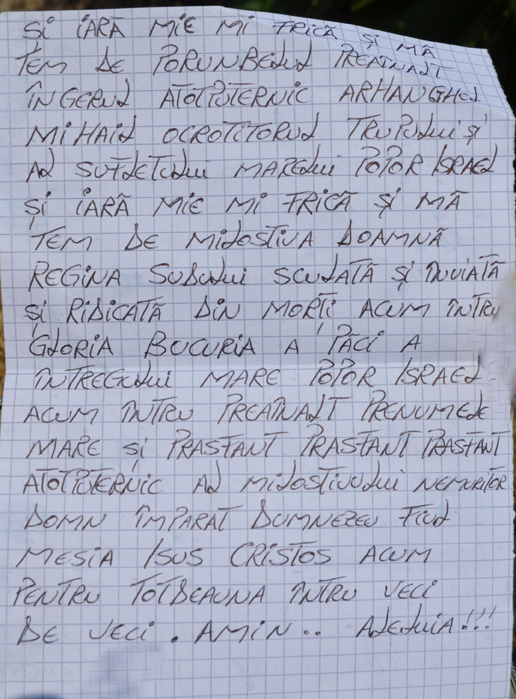 ȘI IARĂ MIE MI FRICĂ ȘI MĂ
TEM DE PORUNBELUL PREAINALT
ÎNGERUL ATOTPOTERNIC ARHANGHEL
MIHAIL OCROTITORUL TRUPULUI ȘI
AL SUFLETULUI MARELUI POPOR ISRAEL
ȘI IARĂ MIE MI FRICĂ ȘI MĂ
TEM DE MILOSTIVA DOAMNĂ
REGINA SUDULUI SCULATĂ ȘI ÎNVIATĂ
ȘI RIDICATĂ DIN MORȚI ACUM ÎNTRU
GLORIA BUCURIA A PĂCI A
ÎNTREGULUI MARE POPOR ISRAEL
ACUM ÎNTRU PREAINALT PRENUMELE
MARE ȘI PRASFANT PRASFANT PRASFANT
ATOTPOTERNIC AL MILOSTIVULUI NEMURITOR
DOMN ÎMPARAT DUMNEZEU FIUL
MESIA ISUS CRISTOS ACUM
PENTRU TOTDEAUNA ÎNTRU VECI
DE VECI. AMIN.. ALELUIA!!!